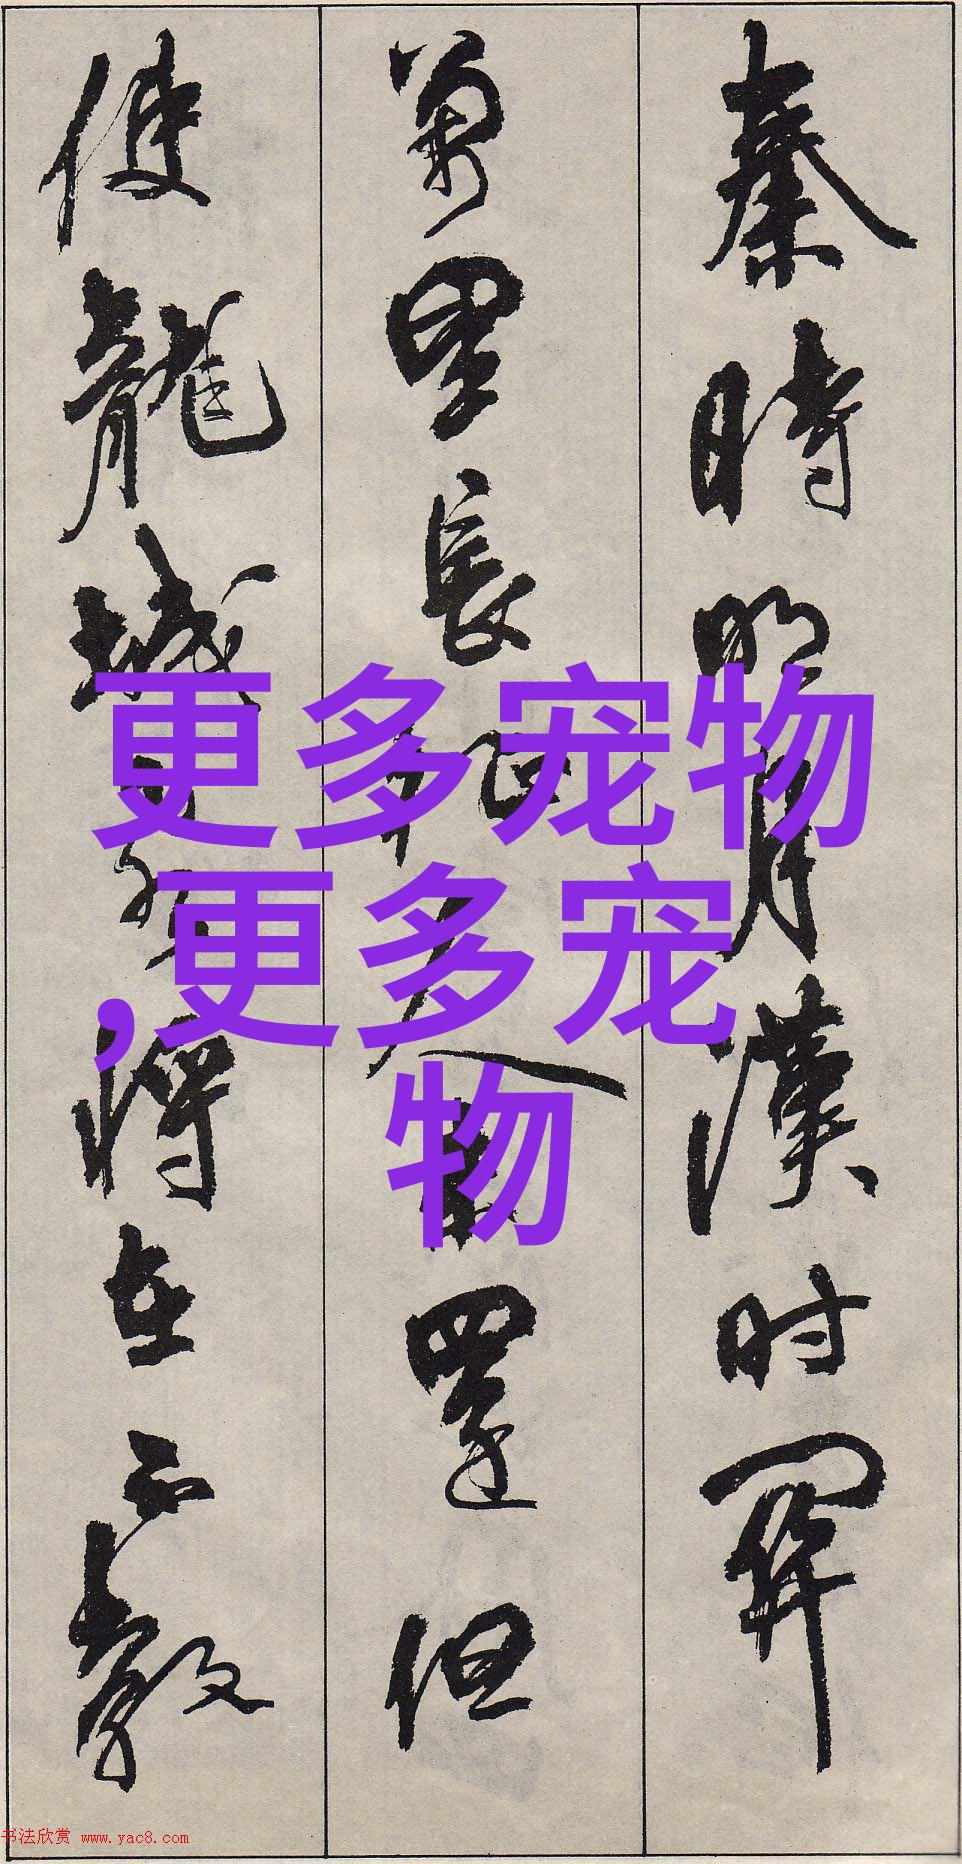 秦時明月漢时關
萬里長征人未還但
使龍城飛將在不教
更多宠物
,更多宠
物
书法欣赏 www.yac8.com